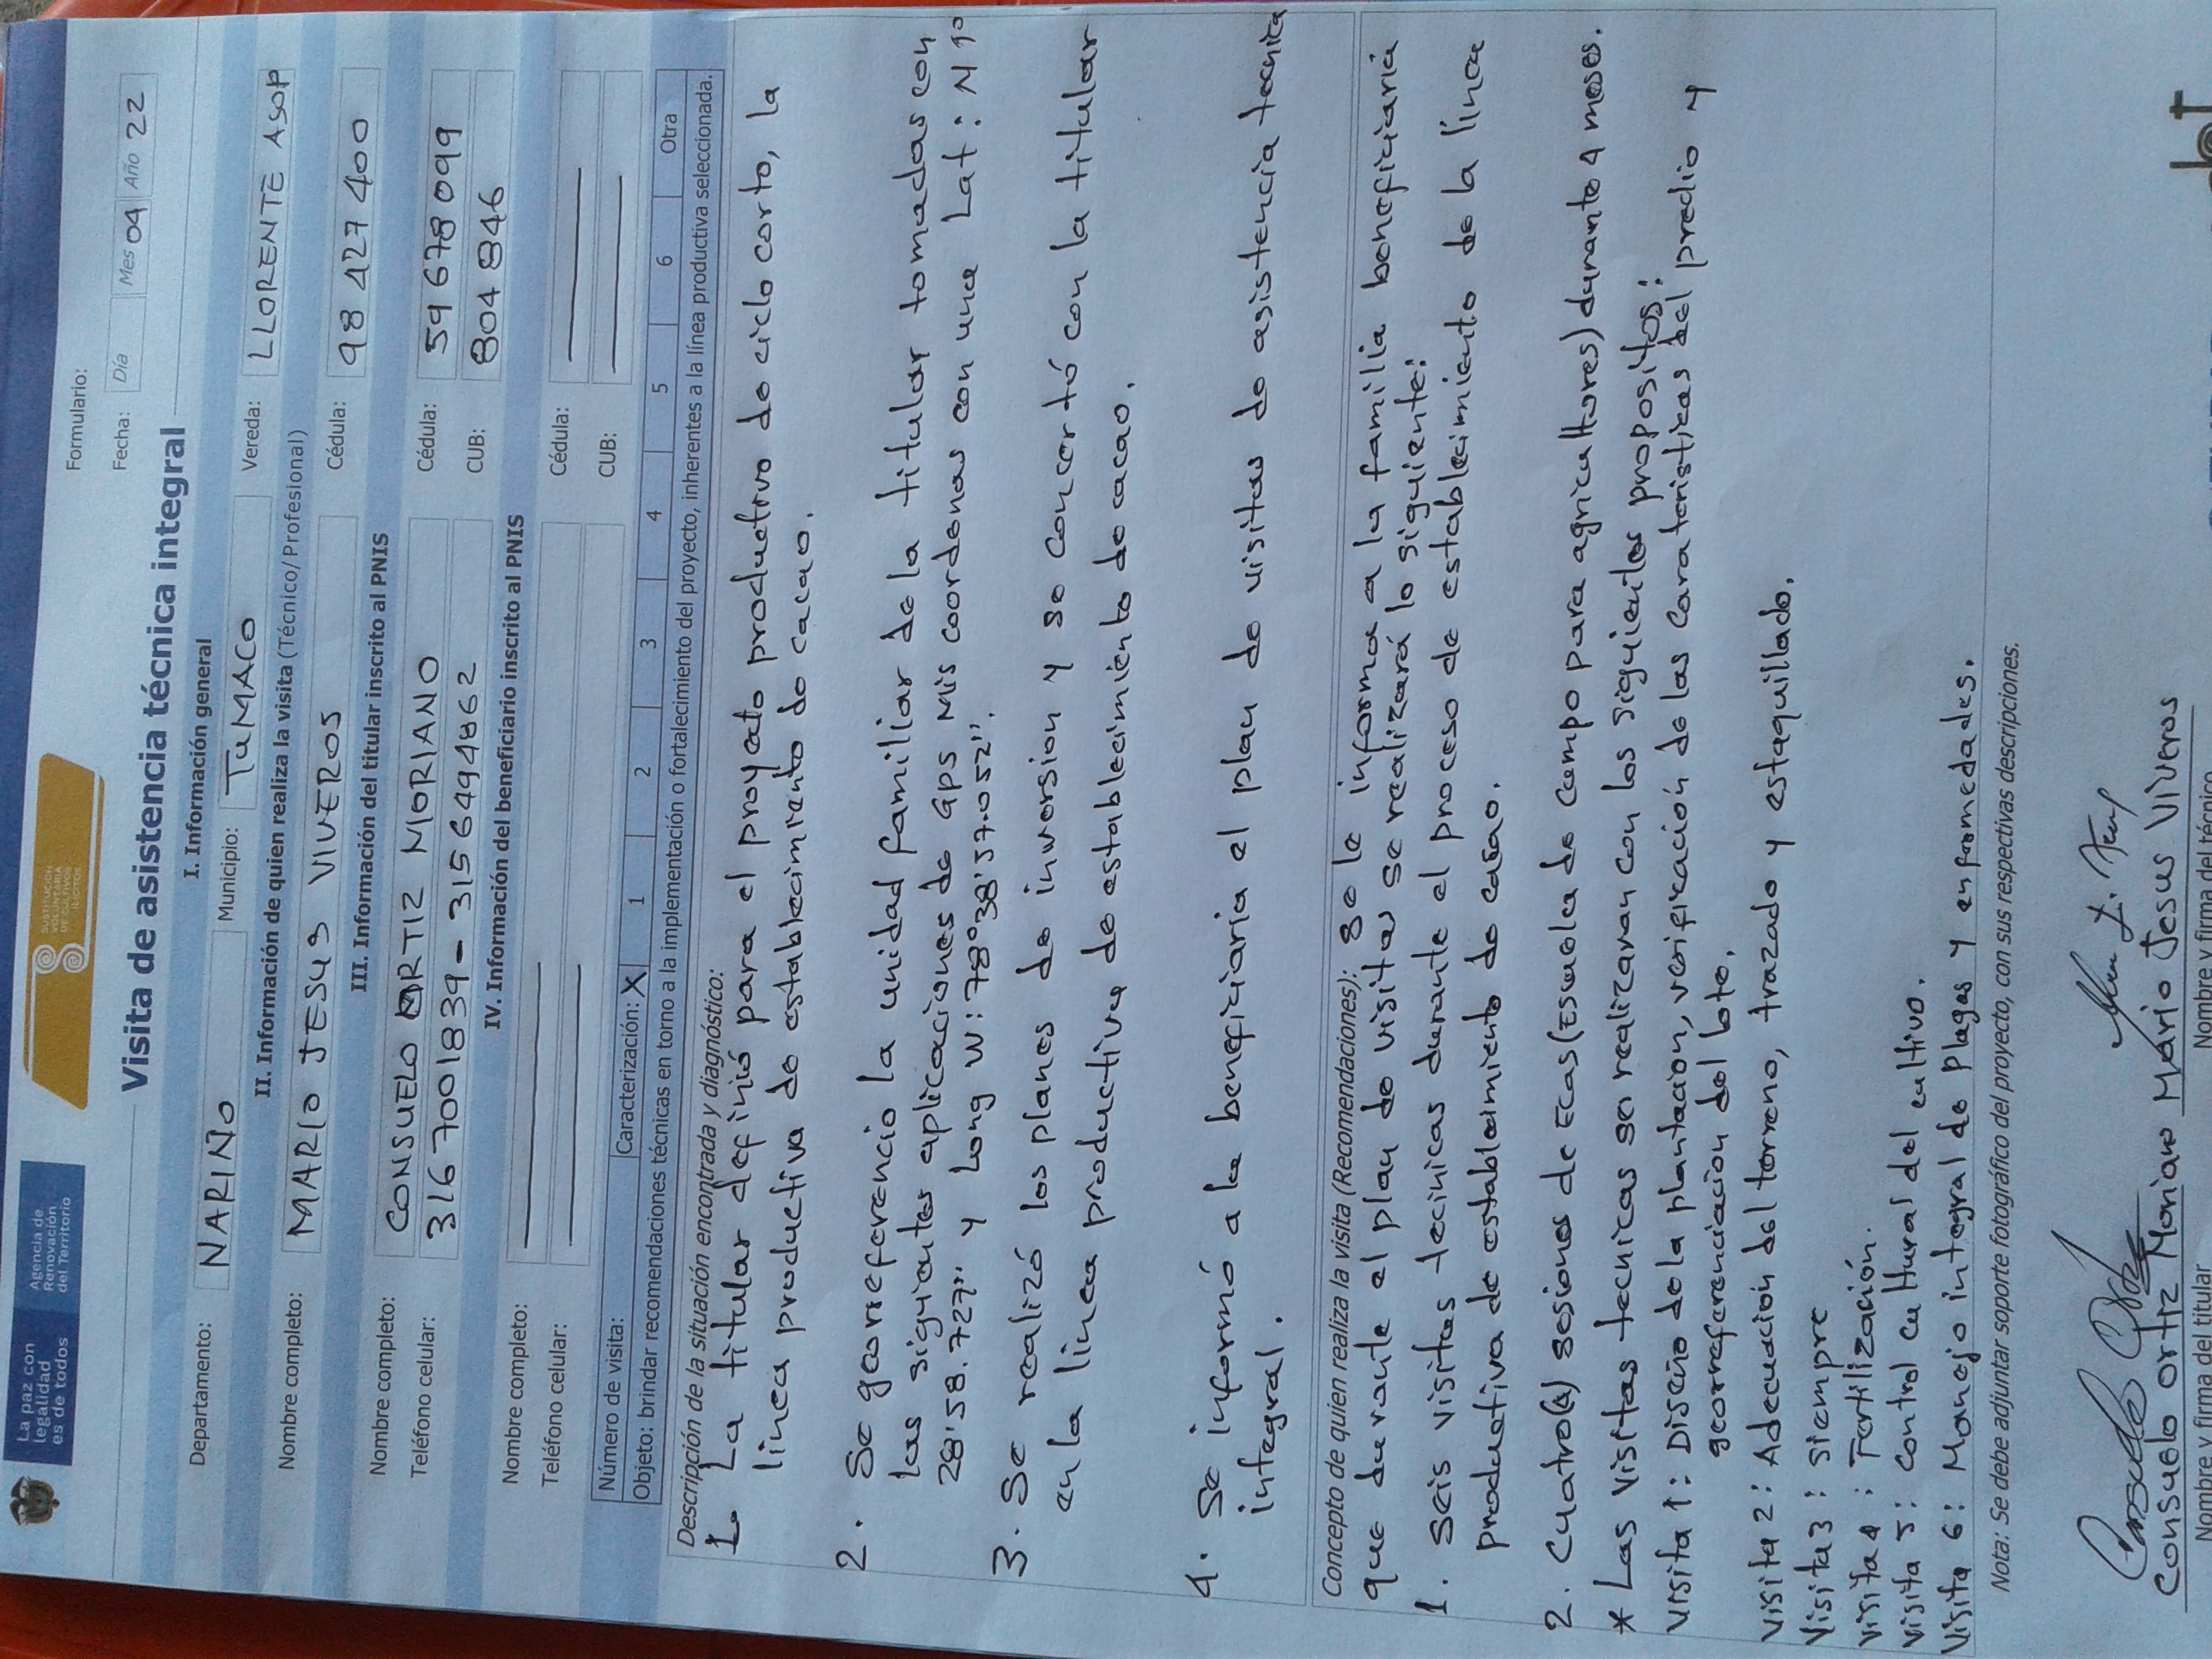 La paz con
legalidad
es de todos
Agencia de
Renovación
del Territorio
SUSTITUCIÓN
VOLUNTARIA
DE CULTIVOS
ILÍCITOS
Formulario:
Fecha: Día Mes 04 Año 22
Visita de asistencia técnica integral
I. Información general
Departamento: NARIÑO Municipio: TuMACO Vereda: LLORENTE ASOP
II. Información de quien realiza la visita (Técnico/Profesional)
Nombre completo: MARIO JESUS VIVEROS Cédula: 98 427 400
III. Información del titular inscrito al PNIS
Nombre completo: CONSUELO ORTIZ MORIANO Cédula: 59 678 099
Teléfono celular: 316 7001839 - 315 6494862 CUB: 804 846
IV. Información del beneficiario inscrito al PNIS
Nombre completo: Cédula:
Teléfono celular: CUB:
Número de visita: Caracterización: X 1 2 3 4 5 6 Otra
Objeto: brindar recomendaciones técnicas en torno a la implementación o fortalecimiento del proyecto, inherentes a la línea productiva seleccionada.
Descripción de la situación encontrada y diagnóstico:
1. La titular definió para el proyecto productivo de ciclo corto, la
linea productiva de establecimiento de cacao.
2. Se georreferencio la unidad familiar de la titular tomadas con
las siguientes aplicaciones de GPS Mis coordenas con una Lat: N 1°
28'58.727" y Long W: 78°38'57.052".
3. Se realizó los planes de inversion y se concertó con la titular
en la linea productiva de establecimiento de cacao.
4. Se informó a la beneficiaria el plan de visitas de asistencia tecnica
integral.
Concepto de quien realiza la visita (Recomendaciones): Se le informa a la familia beneficiaria
que durante el plan de visitas se realizará lo siguiente:
1. Seis visitas tecinicas durante el proceso de establecimiento de la línea
productiva de establecimiento de cacao.
2. Cuatro(4) sesiones de Ecas (Escuela de campo para agricultores) durante 4 meses.
* Las visitas tecnicas se realizaran con los siguientes propositos:
Visita 1: Diseño de la plantacion, verificación de las caracteristicas del predio y
georreferenciacion del lote.
Visita 2: Adecuación del terreno, trazado y estaquillado.
Visita 3: Siempre
Visita 4: Fertilización.
Visita 5: Control cultural del cultivo.
Visita 6: Manejo integral de plagas y enfermedades.
Nota: Se debe adjuntar soporte fotográfico del proyecto, con sus respectivas descripciones.
Consuelo Ortiz Moriano Mario Jesus Viveros
Nombre y firma del titular Nombre y firma del técnico